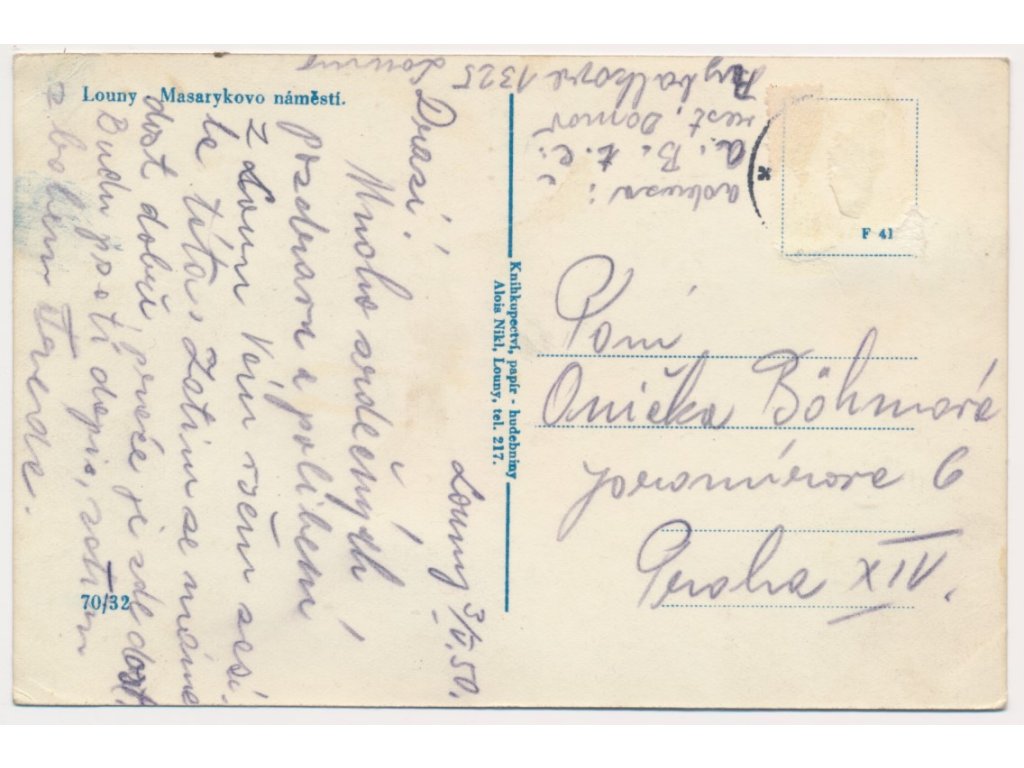 Louny - Masarykovo náměstí.
Louny 3/V. 50.
Drazí!
Mnoho srdečných
pozdravů a políbení
z Loun Vám všem zasí-
lá táta. Zatím se máme
dost dobře, práce je zde dost.
Budu psáti dopis, zatím
s bohem
70/32
Knihkupectví, papír - hudebniny
Alois Nikl, Louny, tel. 217.
adresa:
rest. Domov
Rybalkova 1325
Louny
F 41
Paní
Anička Böhmová
Jaromírova 6
Praha XIV.